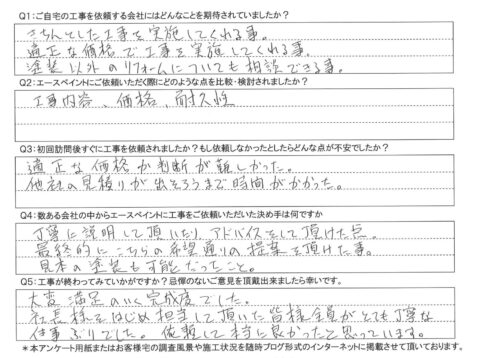 Q1:ご自宅の工事を依頼する会社にはどんなことを期待されていましたか?
きちんとした工事を実施してくれる事。
適正な価格で工事を実施してくれる事。
塗装以外のリフォームについても相談できる事。
Q2:エースペイントにご依頼いただく際にどのような点を比較・検討されましたか?
工事内容、価格、耐久性
Q3:初回訪問後すぐに工事を依頼されましたか?もし依頼しなかったとしたらどんな点が不安でしたか?
適正な価格か判断が難しかった。
他社の見積りが出そろうまで時間がかかった。
Q4:数ある会社の中からエースペイントに工事をご依頼いただいた決め手は何ですか
丁寧に説明して頂いたり、アドバイスをして頂けた点。
最終的にこちらの希望通りの提案を頂けた事。
見本の塗装も可能だったこと。
Q5:工事が終わってみていかがですか?忌憚のないご意見を頂戴出来ましたら幸いです。
大変満足のいく完成度でした。
社長様をはじめ担当して頂いた皆様全員がとても丁寧な
仕事ぶりでした。依頼して本当に良かったと思っています。
*本アンケート用紙またはお客様宅の調査風景や施工状況を随時ブログ形式のインターネットに掲載させて頂いております。